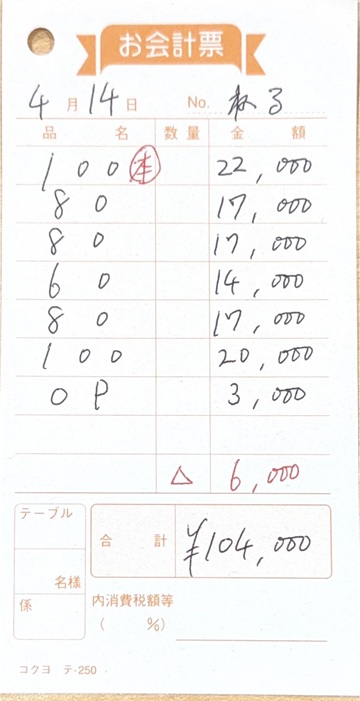 お会計票
4月14日 No. ねる
品名 数量 金額
100 本 22,000
80 17,000
80 17,000
60 14,000
80 17,000
100 20,000
OP 3,000
△ 6,000
テーブル
合計 ¥104,000
名様
係
内消費税額等
( %)
コクヨ テ-250